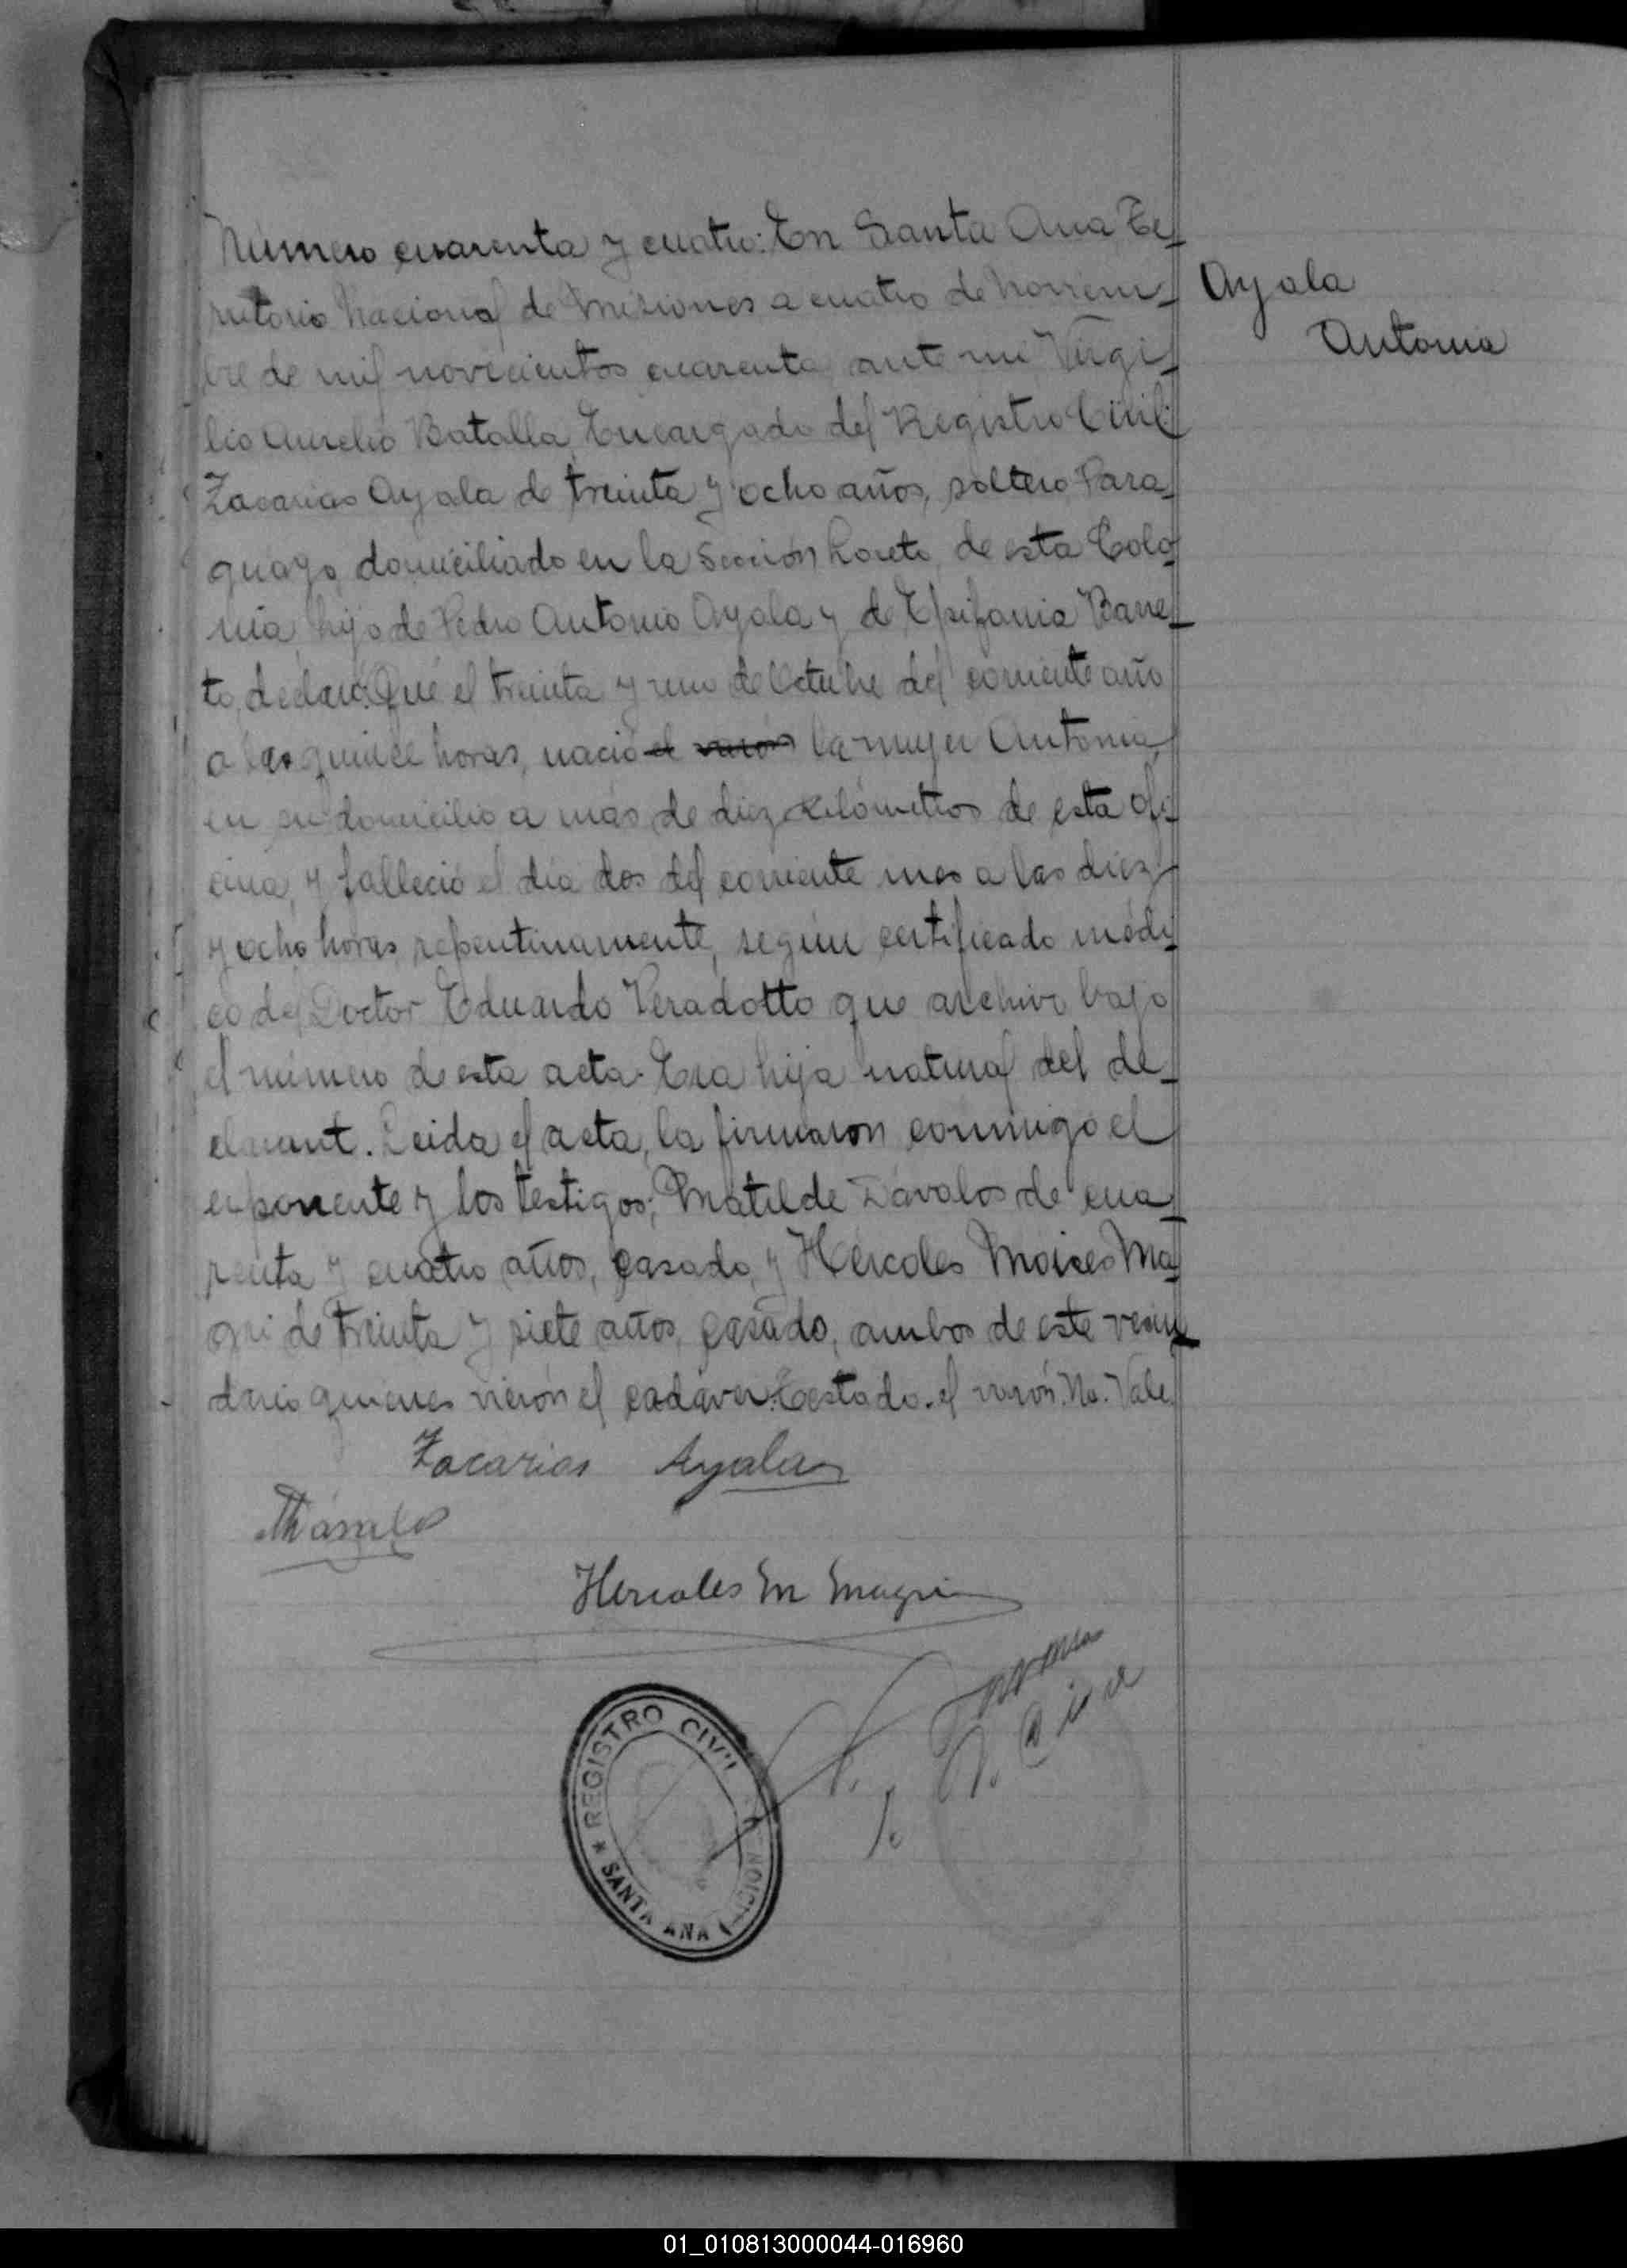 Número cuarenta y cuatro: En Santa Ana Te-
rritorio Nacional de Misiones a cuatro de noviem-
bre de mil novecientos cuarenta, ante mi Virgi-
lio Aurelio Batalla, Encargado del Registro Civil
Zacarias Ayala de treinta y ocho años, soltero Para-
guayo, domiciliado en la Sección Loreto, de esta Colo-
nia, hijo de Pedro Antonio Ayala y de Epifania Barre-
to, declaró: Que el treinta y uno de Octubre del corriente año
a las quince horas, nació el varón la mujer Antonia,
en su domicilio a más de diez kilómetros de esta Ofi-
cina, y falleció el día dos del corriente mes a las diez
y ocho horas, repentinamente, según certificado médi-
co del Doctor Eduardo Peradotto que archivo bajo
el número de esta acta. Era hija natural del de-
clarant. Leida el acta, la firmaron conmigo el
exponente y los testigos; Matilde Dávalos de cua-
renta y cuatro años, casado, y Hércoles Moises Ma-
gri de treinta y siete años, casado, ambos de este vecin-
dario quienes vieron el cadáver. Testado. el varón. No. Vale.
Ayala
Antonia
Zacarias Ayala
Hercoles M Magri
REGISTRO CIVIL
SANTA ANA
01_010813000044-016960